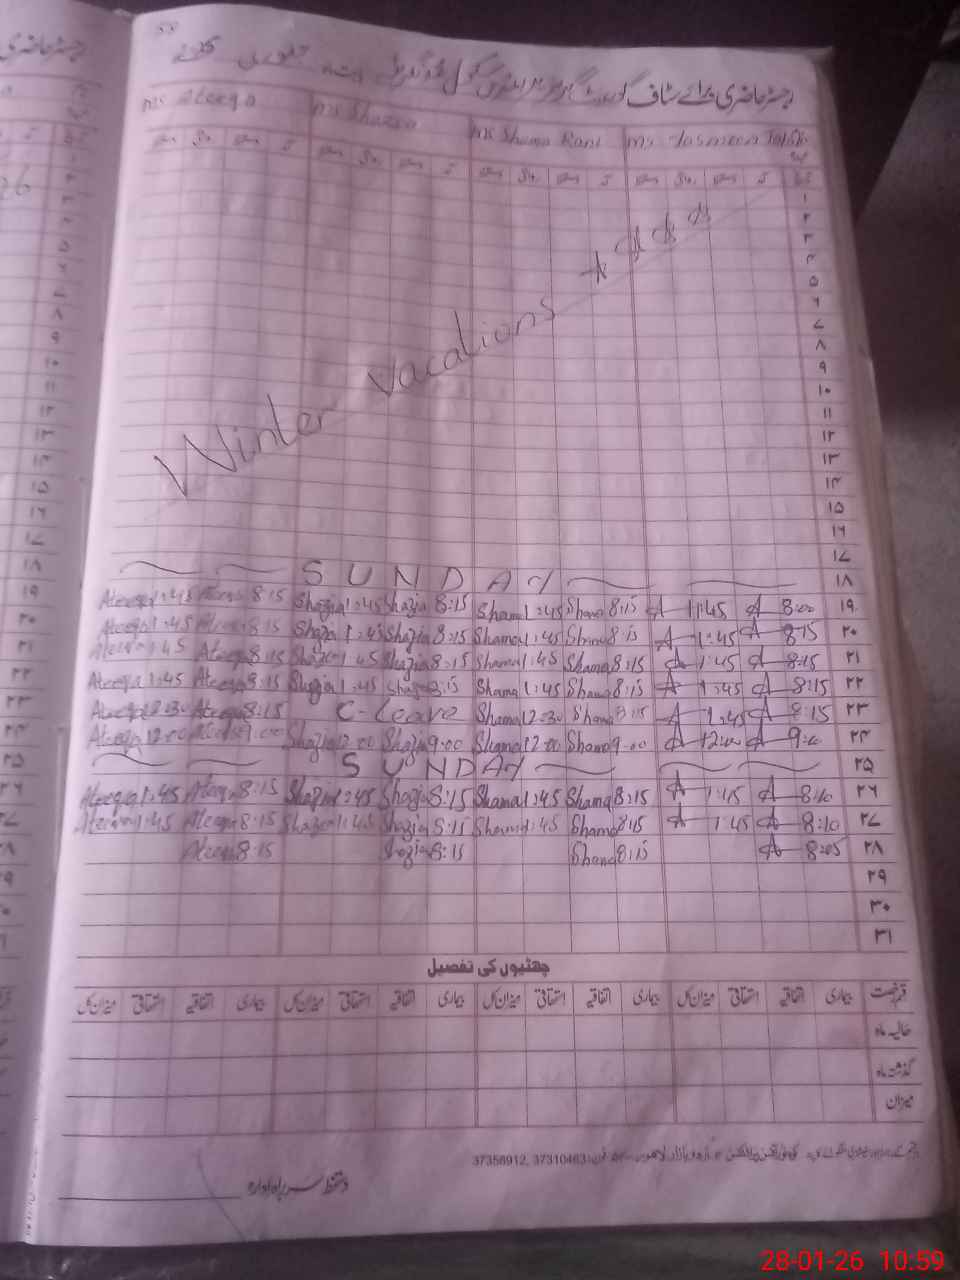 رجسٹر حاضری برائے سٹاف گورنمنٹ گرلز
Ms Ateeqa Ms Shazia Ms Shama Rani Ms Yasmeen
Winter Vacations
۱
۲
۳
۴
۵
۶
۷
۸
۹
۱۰
۱۱
۱۲
۱۳
۱۴
۱۵
۱۶
۱۷
SUNDAY ۱۸
Ateeqa 1:45 Ateeqa 8:15 Shazia 1:45 Shazia 8:15 Shama 1:45 Shama 8:15 A 1:45 A 8:00 ۱۹
Ateeqa 1:45 Ateeqa 8:15 Shazia 1:45 Shazia 8:15 Shama 1:45 Shama 8:15 A 1:45 A 8:15 ۲۰
Ateeqa 1:45 Ateeqa 8:15 Shazia 1:45 Shazia 8:15 Shama 1:45 Shama 8:15 A 1:45 A 8:15 ۲۱
Ateeqa 1:45 Ateeqa 8:15 Shazia 1:45 Shazia 8:15 Shama 1:45 Shama 8:15 A 1:45 A 8:15 ۲۲
Ateeqa 12:30 Ateeqa 8:15 C-Leave Shama 12:30 Shama 8:15 A 1:45 A 8:15 ۲۳
Ateeqa 12:00 Ateeqa 9:00 Shazia 12:00 Shazia 9:00 Shama 12:00 Shama 9:00 A 12:00 A 9:00 ۲۴
SUNDAY ۲۵
Ateeqa 1:45 Ateeqa 8:15 Shazia 1:45 Shazia 8:15 Shama 1:45 Shama 8:15 A 1:45 A 8:10 ۲۶
Ateeqa 1:45 Ateeqa 8:15 Shazia 1:45 Shazia 8:15 Shama 1:45 Shama 8:15 A 1:45 A 8:10 ۲۷
Ateeqa 8:15 Shazia 8:15 Shama 8:15 A 8:05 ۲۸
۲۹
۳۰
۳۱
چھٹیوں کی تفصیل
قسم رخصت بیماری اتفاقیہ استحقاقی میزان کل بیماری اتفاقیہ استحقاقی میزان کل بیماری اتفاقیہ استحقاقی میزان کل بیماری اتفاقیہ استحقاقی میزان کل
حالیہ ماہ
گذشتہ ماہ
میزان
اردو بازار لاہور فون: 37310463, 37356912
دستخط سربراہ ادارہ
28-01-26 10:59